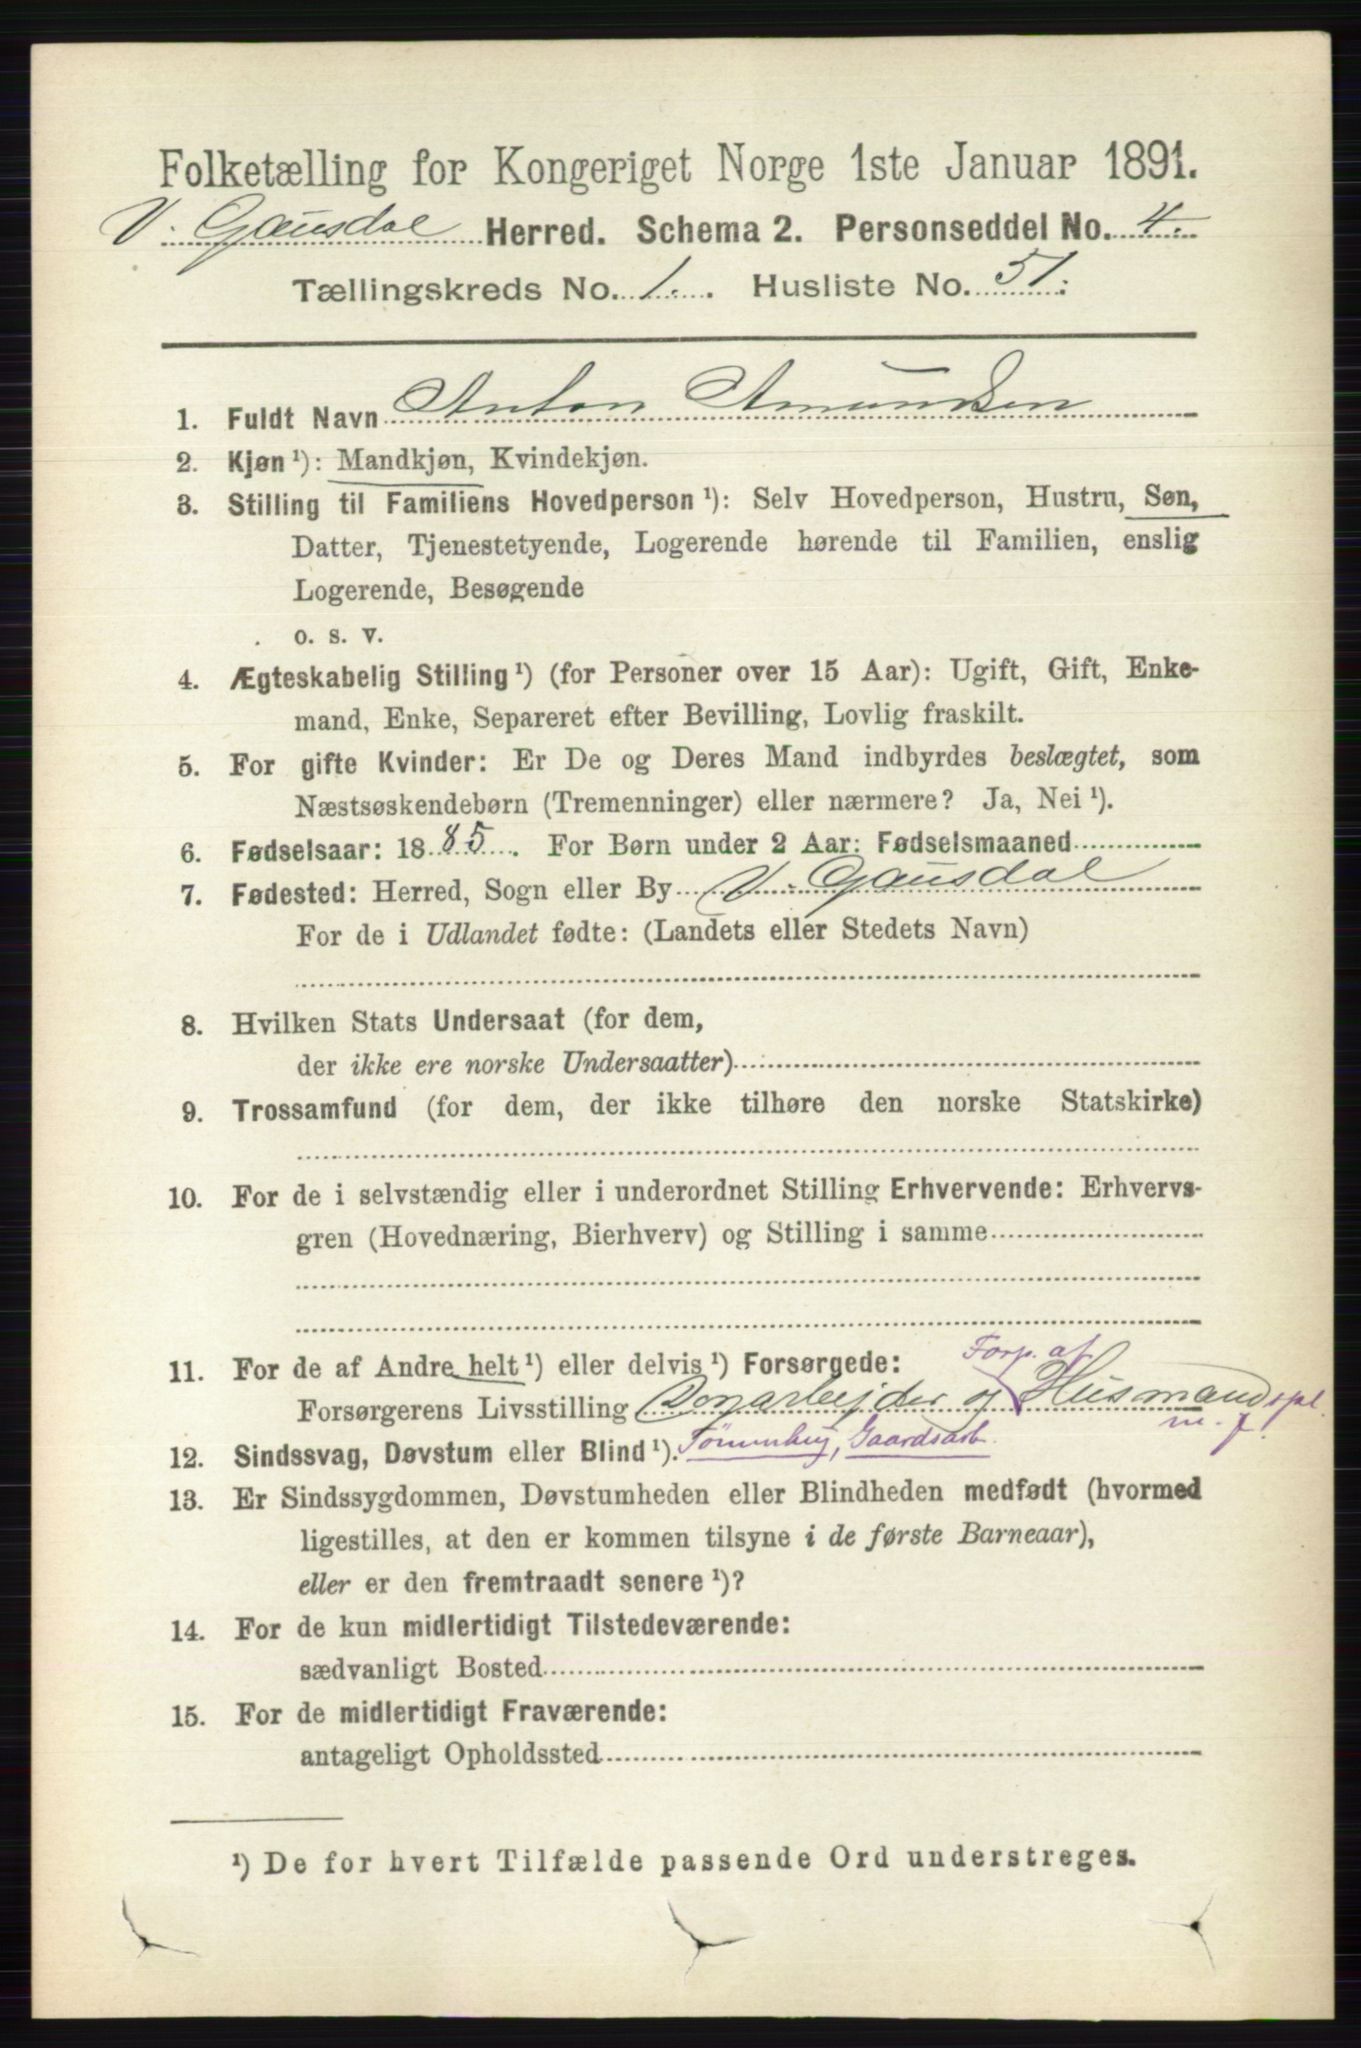 Folketælling for Kongeriget Norge 1ste Januar 1891.
V. Gausdal Herred. Schema 2. Personseddel No. 4.
Tællingskreds No. 1. Husliste No. 51.
1. Fuldt Navn Anton Amundsen
2. Kjøn ¹): Mandkjøn, Kvindekjøn.
3. Stilling til Familiens Hovedperson ¹): Selv Hovedperson, Hustru, Søn,
Datter, Tjenestetyende, Logerende hørende til Familien, enslig
Logerende, Besøgende
o. s. v.
4. Ægteskabelig Stilling ¹) (for Personer over 15 Aar): Ugift, Gift, Enke-
mand, Enke, Separeret efter Bevilling, Lovlig fraskilt.
5. For gifte Kvinder: Er De og Deres Mand indbyrdes beslægtet, som
Næstsøskendebørn (Tremenninger) eller nærmere? Ja, Nei ¹).
6. Fødselsaar: 1885. For Børn under 2 Aar: Fødselsmaaned
7. Fødested: Herred, Sogn eller By V. Gausdal
For de i Udlandet fødte: (Landets eller Stedets Navn)
8. Hvilken Stats Undersaat (for dem,
der ikke ere norske Undersaatter)
9. Trossamfund (for dem, der ikke tilhøre den norske Statskirke)
10. For de i selvstændig eller i underordnet Stilling Erhvervende: Erhvervs-
gren (Hovednæring, Bierhverv) og Stilling i samme
Forp. af
11. For de af Andre helt ¹) eller delvis ¹) Forsørgede:
Forsørgerens Livsstilling Dagarbejder og Husmandspl.
m. j.
12. Sindssvag, Døvstum eller Blind ¹). Tømmerhug, Gaardsarb.
13. Er Sindssygdommen, Døvstumheden eller Blindheden medfødt (hvormed
ligestilles, at den er kommen tilsyne i de første Barneaar),
eller er den fremtraadt senere ¹)?
14. For de kun midlertidigt Tilstedeværende:
sædvanligt Bosted
15. For de midlertidigt Fraværende:
antageligt Opholdssted
¹) De for hvert Tilfælde passende Ord understreges.